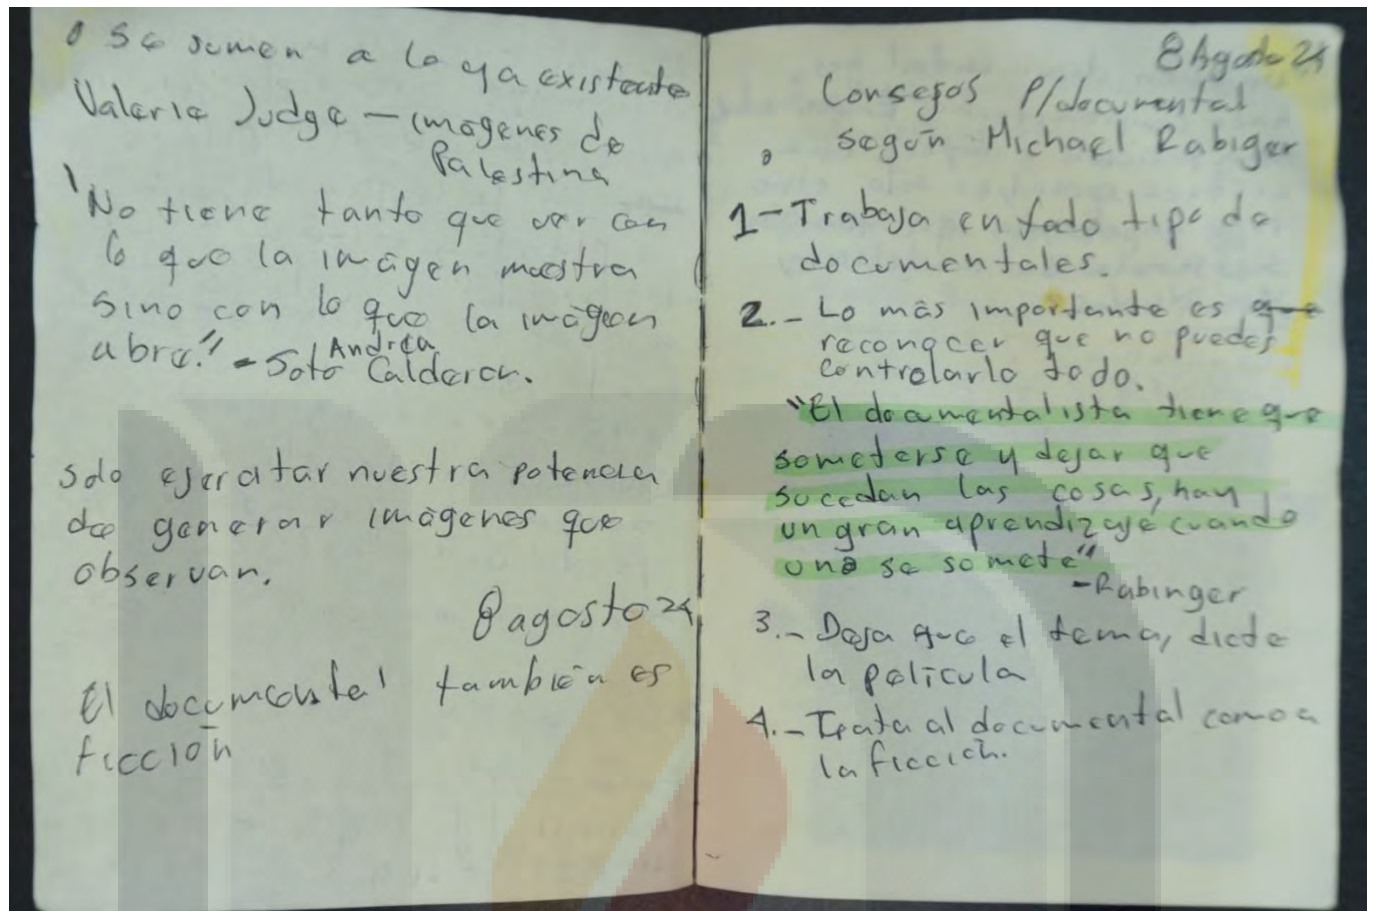 o se sumen a lo ya existente
Valerie Judge – imágenes de
Palestina
"No tiene tanto que ver con
lo que la imágen muestra
sino con lo que la imágen
abre." – Andrea
Soto Calderon.
solo ejercitar nuestra potencia
de generar imágenes que
observan.
8 agosto 24
El documental también es
ficción
8 Agosto 24
Consejos p/documental
según Michael Rabiger
1- Trabaja en todo tipo de
documentales.
2.- Lo más importante es que
reconocer que no puedes
controlarlo todo.
"El documentalista tiene que
someterse y dejar que
sucedan las cosas, hay
un gran aprendizaje cuando
uno se somete"
-Rabinger
3.- Deja que el tema, dicte
la película
4.- Trata al documental como a
la ficción.